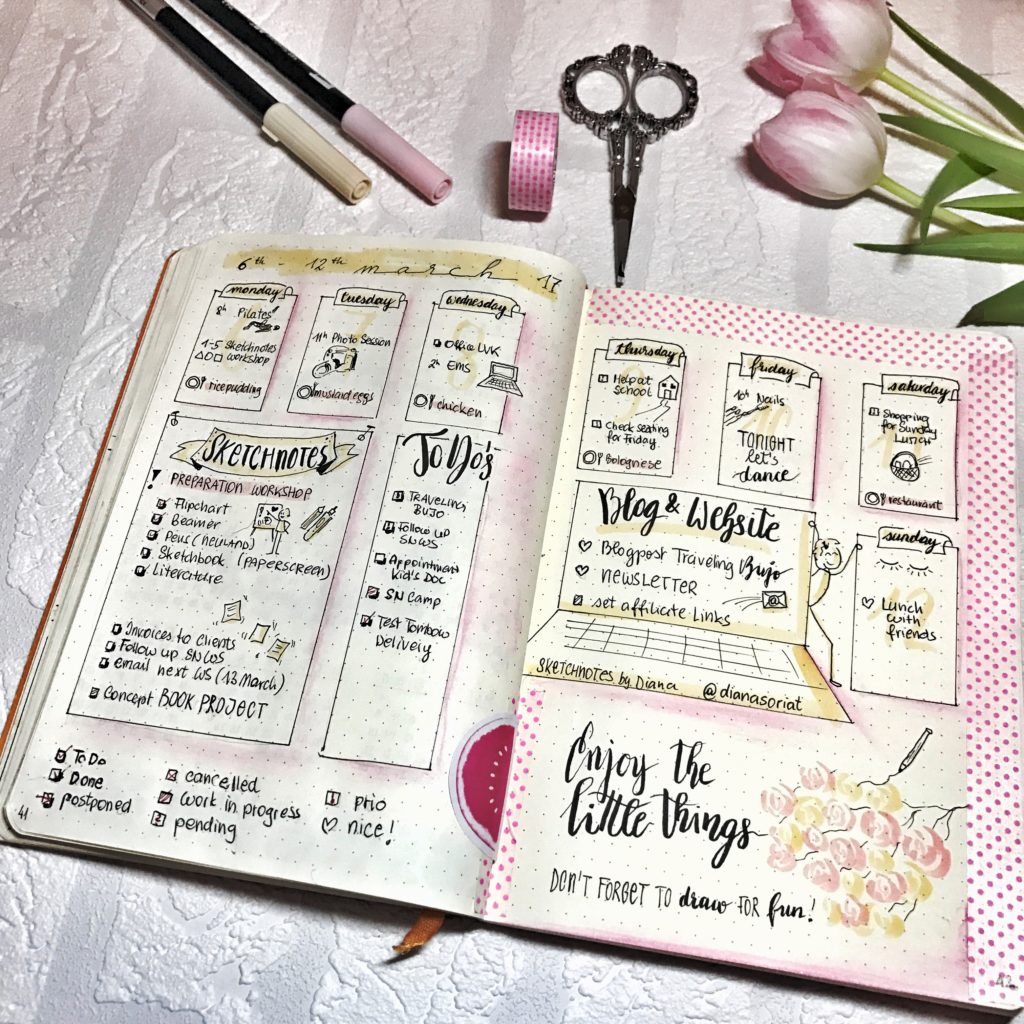 6th - 12th march 17
monday
8h Pilates
1-5 Sketchnotes
workshop
ricepudding
tuesday
11h Photo Session
mustard eggs
wednesday
Office LVK
2h Ems
chicken
SKETCHNOTES
! PREPARATION WORKSHOP
Flipchart
Beamer
Pens (NEULAND)
Sketchbook (PAPERSCREEN)
Literature
Invoices to clients
Follow up SNWS
email next WS (13 March)
Concept BOOK PROJECT
To Do's
TRAVELING
BUJO
Follow up
SNWS
Appointment
Kid's Doc
SN Camp
Test Tombow
Delivery
ToDo
Done
postponed
cancelled
work in progress
pending
prio
nice!
41
thursday
9
Help at
school
Check seating
for Friday
Bolognese
friday
10
10h Nails
TONIGHT
let's
dance
saturday
11
Shopping
for Sunday
Lunch
restaurant
Blog & Website
Blogpost Traveling Bujo
NEWSLETTER
set affiliate Links
@
SKETCHNOTES by Diana @dianasoriat
sunday
12
Lunch
with
friends
Enjoy the
little things
DON'T FORGET TO draw FOR fun!
42